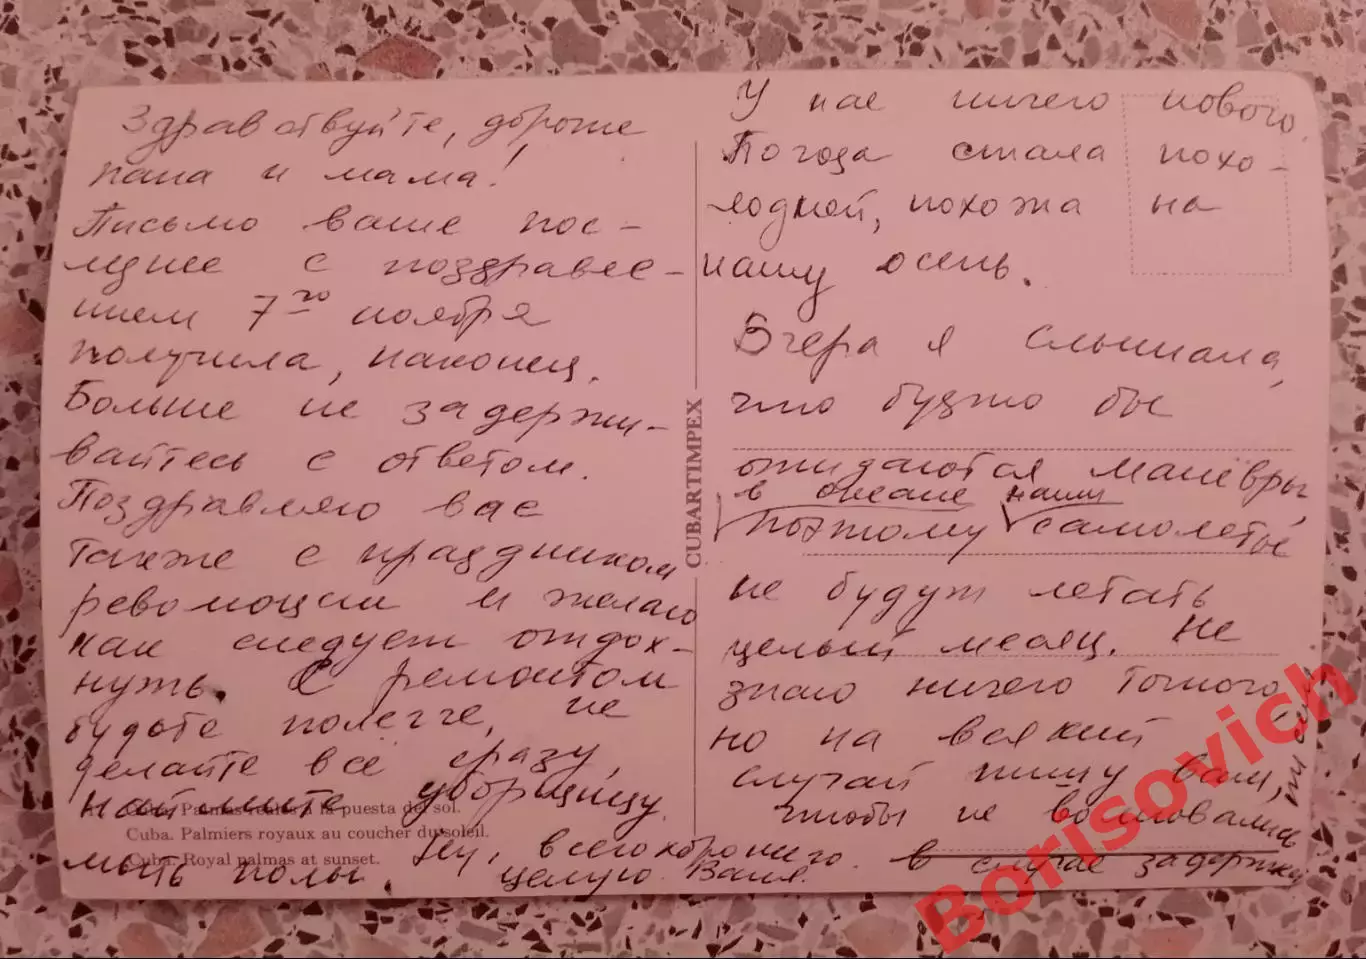 Здравствуйте, дорогие
папа и мама!
Письмо ваше пос-
леднее с поздравле-
нием 7го ноября
получила, наконец.
Больше не задержи-
вайтесь с ответом.
Поздравляю вас
также с праздником
революции и желаю
как следует отдох-
нуть. С ремонтом
будьте полегче, не
делайте всё сразу,
наймите уборщицу
мыть полы.
Ну, всего хорошего.
целую. Ваня.
Cuba. Palmas reales a la puesta del sol.
Cuba. Palmiers royaux au coucher du soleil.
Cuba. Royal palmas at sunset.
CUBARTIMPEX
У нас ничего нового.
Погода стала похо-
лодней, похожа на
нашу осень.
Вчера я слышала,
что будто бы
ожидаются манёвры
в океане наши
поэтому самолеты
не будут летать
целый месяц. Не
знаю ничего точного,
но на всякий
случай пишу вам,
чтобы не волновались
в случае задержки
Borisovich